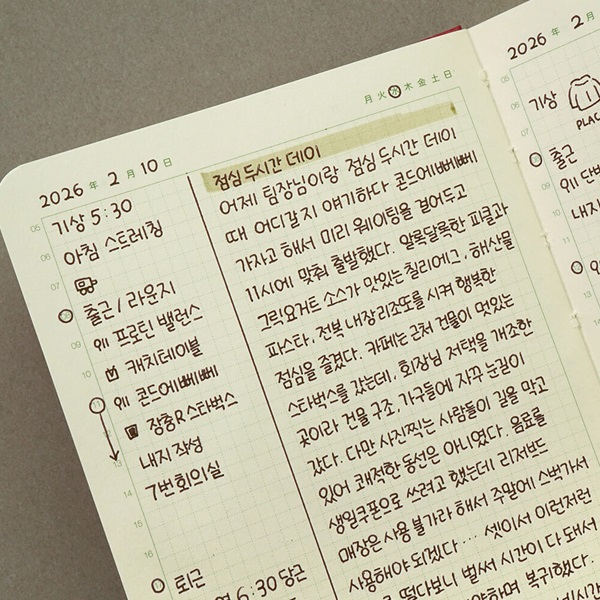 月火水木金土日
2026年 2月 10日
기상 5:30
아침 스트레칭
출근 / 라운지
프로틴 밸런스
캐치테이블
콘드에뻬뻬
장충R스타벅스
내지 작성
7번회의실
퇴근
6:30 당근
05
06
07
09
10
13
14
15
16
점심 두시간 데이
어제 팀장님이랑 점심 두시간 데이
때 어디갈지 얘기하다 콘드에뻬뻬
가자고 해서 미리 웨이팅을 걸어두고
11시에 맞춰 출발했다. 알록달록한 피클과
그릭요거트 소스가 맛있는 칠리에그, 해산물
파스타, 전복내장리조또를 시켜 행복한
점심을 즐겼다. 카페는 근처 건물이 멋있는
스타벅스를 갔는데, 회장님 저택을 개조한
곳이라 건물 구조, 가구들에 자꾸 눈길이
갔다. 다만 사진찍는 사람들이 길을 막고
있어 쾌적한 동선은 아니었다. 음료를
생일쿠폰으로 쓰려고 했는데 리저브드
매장은 사용불가라 해서 주말에 스벅가서
사용해야 되겠다... 셋이서 이런저런
떨다보니 벌써 시간이 다 돼서
하며 복귀했다.
2026年 2月
기상
PLAC
출근
단백
내지
05
06
09
10
11